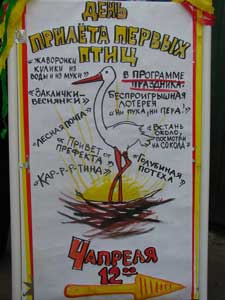 ДЕНЬ
ПРИЛЁТА ПЕРВЫХ
ПТИЦ
"ЖАВОРОНКИ
КУЛИКИ ИЗ
ВОДЫ И ИЗ МУКИ"
"ЗАКЛИЧКИ-
ВЕСНЯНКИ"
"ЛЕСНАЯ ПОЧТА"
"ПРИВЕТ
ПРЕФЕКТА"
"КАР-Р-Р-ТИНА"
В ПРОГРАММЕ
ПРАЗДНИКА:
БЕСПРОИГРЫШНАЯ
ЛОТЕРЕЯ
"НИ ПУХА, НИ ПЕРА!"
"ВСТАНЬ
ОКОЛО,
ПОСМОТРИ
НА СОКОЛА"
"ГОЛУБИНАЯ
ПОТЕХА"
4 АПРЕЛЯ
12 00